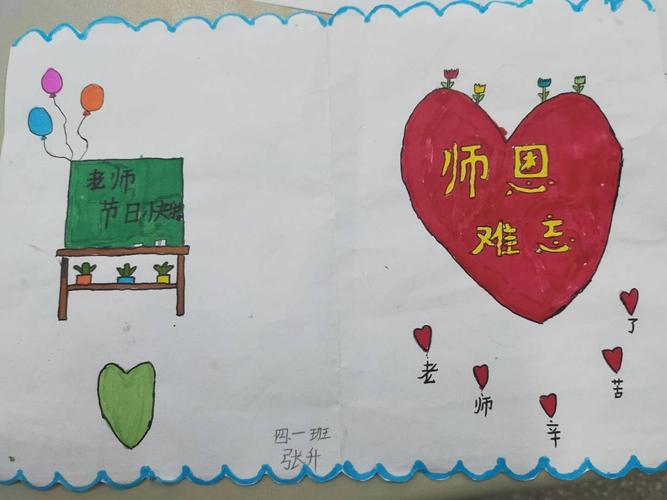 老师
节日快
四一班
张升
师恩
难忘
老师辛苦了